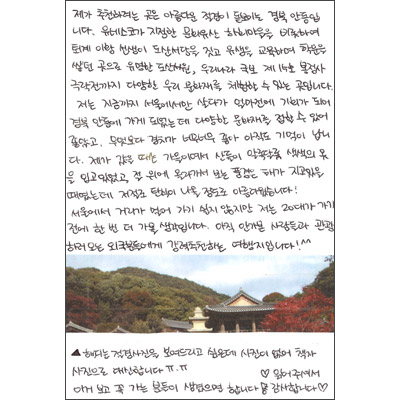 제가 추천하려는 곳은 아름다운 절경이 돋보이는 경북 안동입
니다. 유네스코가 지정한 문화유산 하회마을을 비롯하여
퇴계 이황 선생이 도산서당을 짓고 유생을 교육하며 학문을
쌓던 곳으로 유명한 도산서원, 우리나라 국보 제 15호 봉정사
극락전까지 다양한 우리 문화재를 체험할 수 있는 곳입니다.
저는 지금까지 서울에서만 살다가 얼마전에 기회가 되어
경북 안동에 가게 되었는데 다양한 문화재를 접할 수 있어
좋았고, 무엇보다 경치가 너무너무 좋아 아직도 기억이 납니
다. 제가 갔을 때는 가을이여서 산들이 알록달록 색색의 옷
을 입고있었고, 산 위에 올라가서 보는 풍경은 해가 지고있을
때였는데 저절로 탄성이 나올 정도로 아름다웠습니다!
서울에서 거리가 멀어 가기 쉽지 않지만 저는 20대가 가기
전에 한 번 더 가볼 생각입니다. 아직 안가본 사람들과 관광
하러 오는 외국인들에게 강력추천하는 여행지입니다!^^
▲해지는 절경사진을 보여드리고 싶은데 사진이 없어 책자
사진으로 대신합니다 ㅠ.ㅠ ♡ 읽어주셔서
이거 보고 꼭 가는 분들이 생겼으면 합니다 감사합니다♡